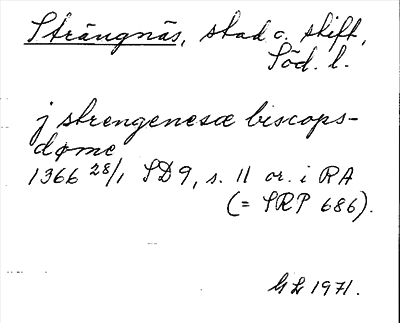 Strängnäs, stad o. stift,
Söd. l.
j strengenesæ biscops-
døme
1366 28/1 SD9, s. 11 or. i RA
(= SRP 686).
GL 1971.